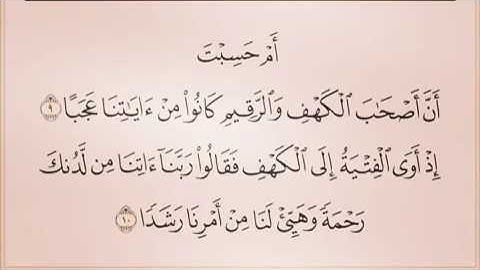 أَمْ حَسِبْتَ
أَنَّ أَصْحَٰبَ ٱلْكَهْفِ وَٱلرَّقِيمِ كَانُوا۟ مِنْ ءَايَٰتِنَا عَجَبًا ۝٩
إِذْ أَوَى ٱلْفِتْيَةُ إِلَى ٱلْكَهْفِ فَقَالُوا۟ رَبَّنَآ ءَاتِنَا مِن لَّدُنكَ
رَحْمَةً وَهَيِّئْ لَنَا مِنْ أَمْرِنَا رَشَدًا ۝١٠